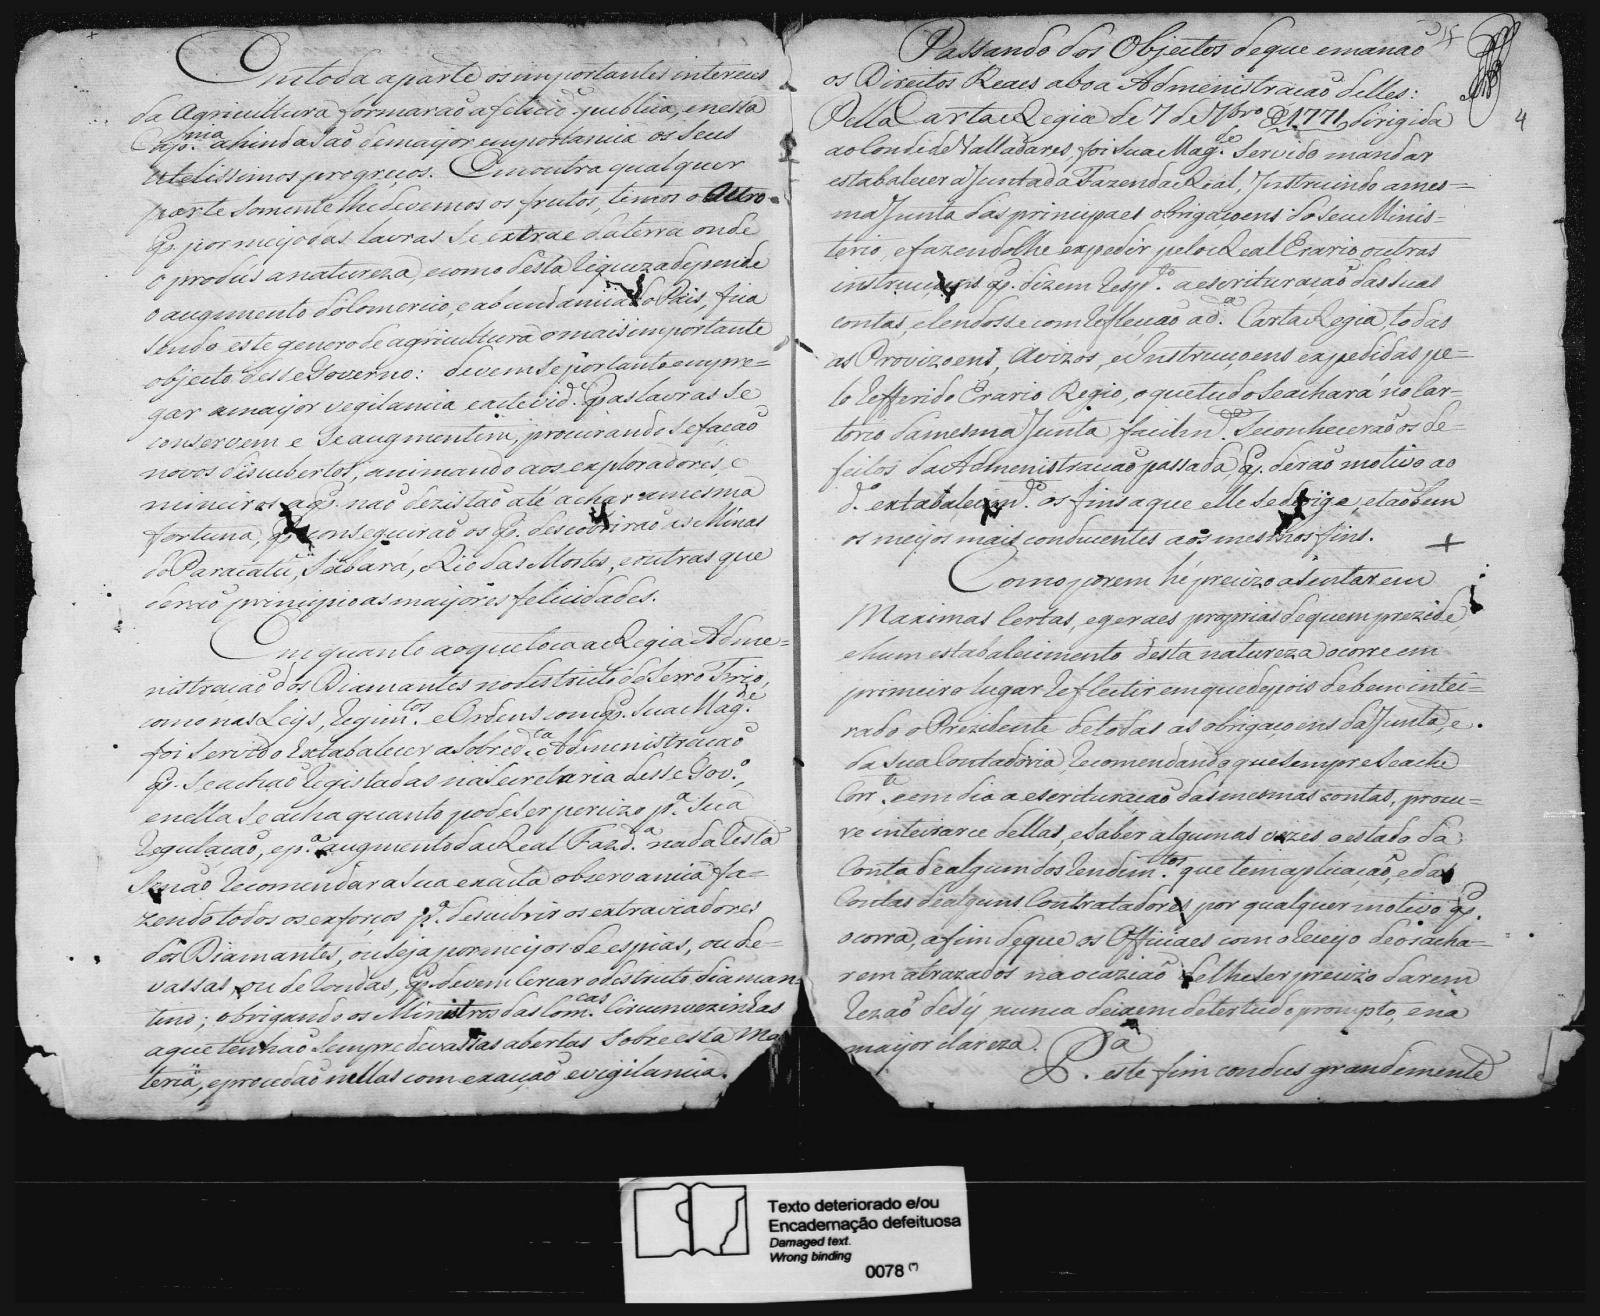 Em toda a parte os importantes interesses
da Agricultura formarão a felicid.e publica, e nesta
Cap.nia ahinda são de mayor emportancia os seus
utelissimos progreços. Em outra qualquer
parte somente lhe devemos os frutos, temos o Ouro
q. por meyo das lavras se extrae da terra onde
o produs a natureza, e como desta riqueza depende
o augmento do Comercio, e abundancia do Pais, fica
sendo este genero de agricultura o mais importante
objecto desse Governo: devemse portanto empre=
gar a mayor vegilancia e actevid.e p.a q as lavras se
conservem e se augmentem, procurando se fação
novos discubertos, animando aos exploradores, e
mineiros a q. não dezistão até achar a mesma
fortuna, q. conseguirão os q. descobrirão as Minas
do Paracatú, Sabara, Rio das Mortes, e outras que
derão principio as mayores felicidades.
Em quanto ao que toca a Regia Adme=
nistração dos Diamantes no destricto do Serro Frio,
como nas Leys, Regim.tos e Ordens com q. Sua Mag.de
foi servido extabalecer a sobred.ta Administração
q. se achão registadas na Secretaria desse Gov.o,
e nella se acha quanto pode ser percizo p.a sua
Regulação, e p.a augmento da Real Faz.da nada resta
senão recomendar a sua exacta observancia fa=
zendo todos os exforços p.a descubrir os extraviadores
dos Diamantes, ou seja por meyos de espias, ou de=
vassas ou de rondas, q. devem cercar o destricto diaman
tino; obrigando os Ministros das Com.cas circumvezinhas
a que tenhão sempre devassas abertas sobre esta Ma
teria, e procedão nellas com exação e vigilancia.
Passando dos Objectos de que emanão
os Direitos Reaes a boa Administração delles:
Pella Carta Regia de 7 de 7bro de 1771, dirigida
4
ao Conde de Valladares, foi Sua Mag.de servido mandar
estabalecer a Junta da Fazenda Real, Instruindo a mes=
ma Junta das principaes obrigaçoens do seu Minis=
terio, e fazendolhe expedir pelo Real Erario outras
instrucçoens q. dizem resp.to a escrituração das suas
contas, e lendosse com reflecção a d.a Carta Regia, todas
as Provizoens, Avizos, e Instrucçoens expedidas pe=
lo refferido Erario Regio, o que tudo se achará no Car=
torio da mesma Junta facilm.de se conhecerão os de=
feitos da Admenistração passada, q. derão motivo ao
d.o extabalecim.to os fins a que elle se derige, e tãobem
os meyos mais conducentes aos mesmos fins.
Como porem hé precizo asentar em
Maximas certas, e geraes proprias de quem prezide
e hum estabalecimento desta natureza ocorre em
primeiro lugar reflectir em que depois de bem intei=
rado o Prezidente de todas as obrigaçoens da Junta, e
da sua Contadoria, recomendando que sempre se ache
Corr.te e em dia a escrituração das mesmas contas, procu=
re inteirarce dellas, e saber algumas vezes o estado da
Conta de algum dos rendim.tos que tem aplicação, e das
Contas de alguns Contratadores por qualquer motivo q.
ocorra, a fim de que os Officiaes com o receyo de o acha=
rem atrazados na ocazião de lhe ser precizo darem
rezão de sy nunca deixem de ter tudo prompto, e na
mayor clareza.
P.a este fim condus grandemente
Texto deteriorado e/ou
Encadernação defeituosa
Damaged text.
Wrong binding
0078 (*)